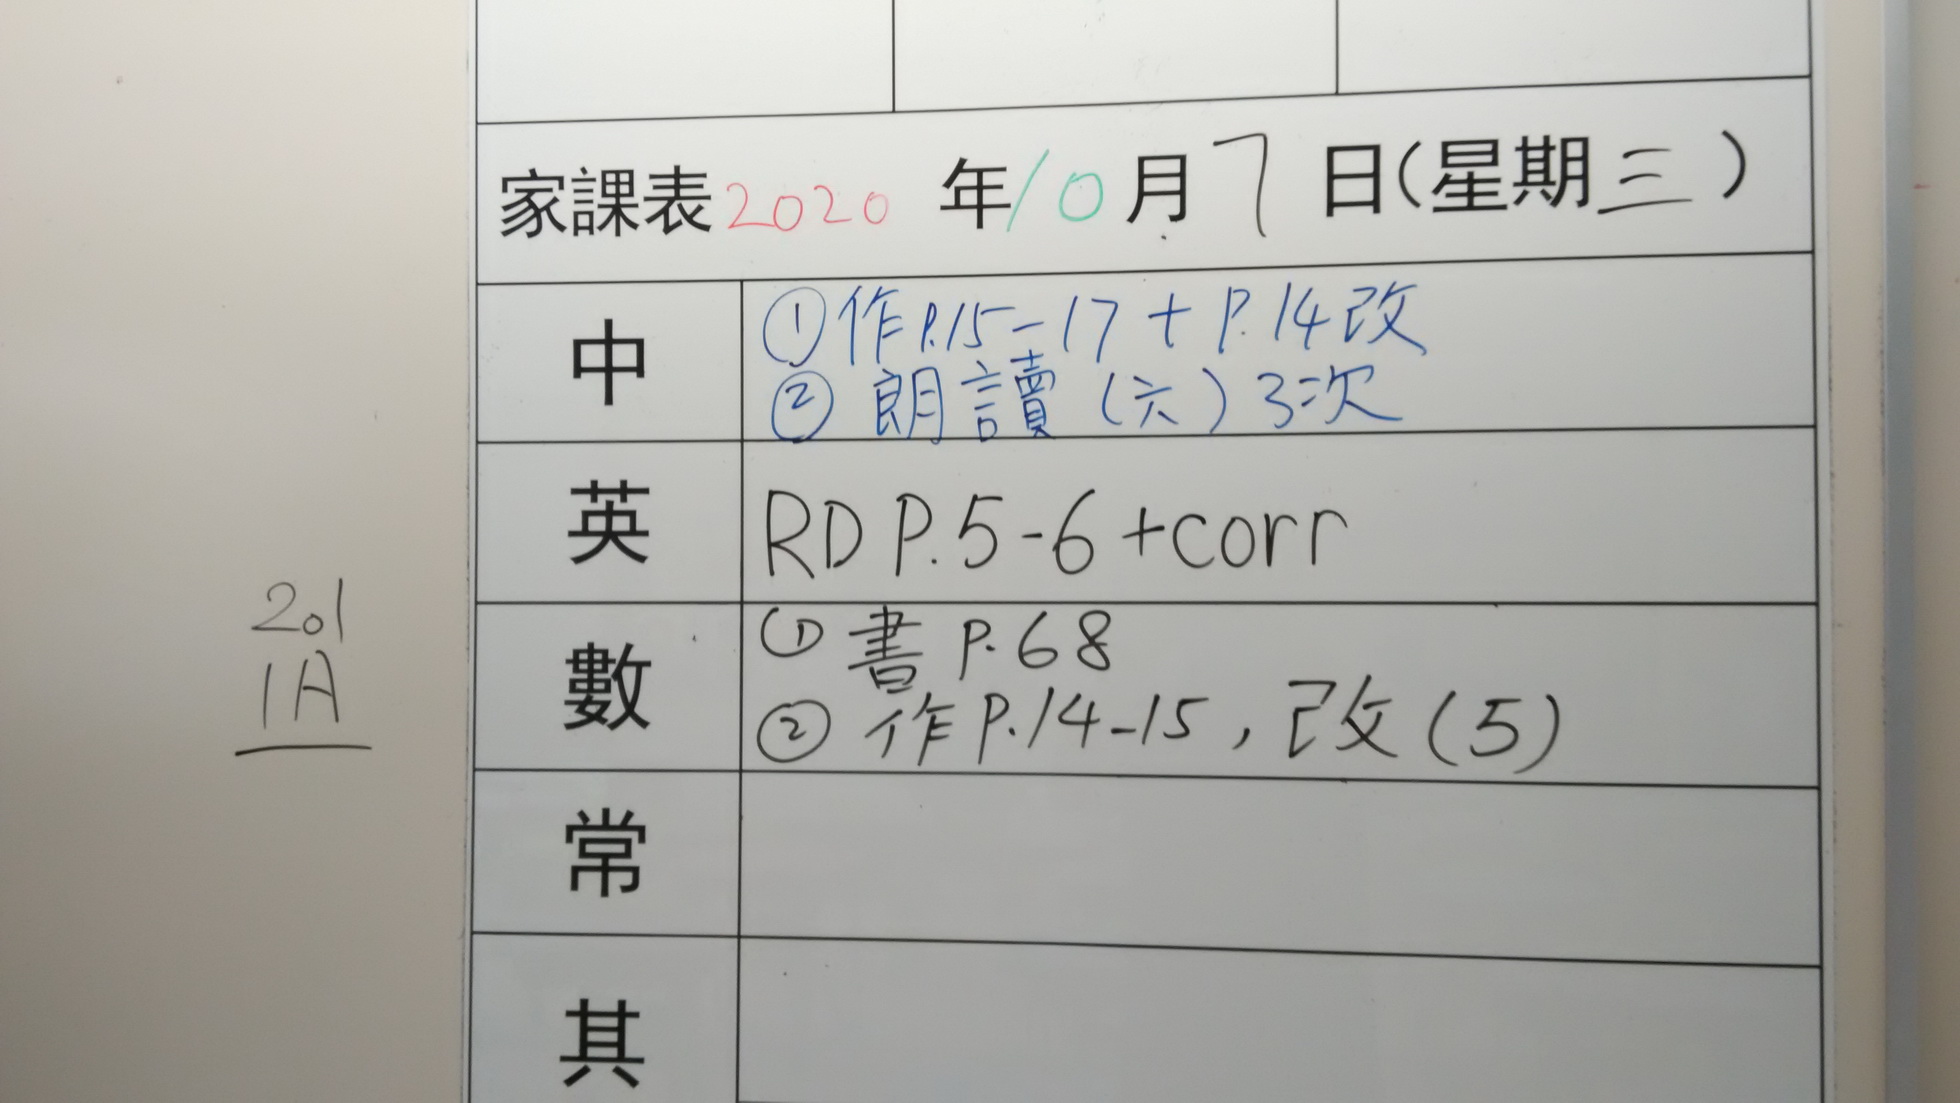 家課表 2020 年 10 月 7 日(星期三)
中
①作P.15-17+P.14改
②朗讀(六)3次
英
RD P.5-6+corr
201
1A
數
①書P.68
②作P.14-15,改(5)
常
其